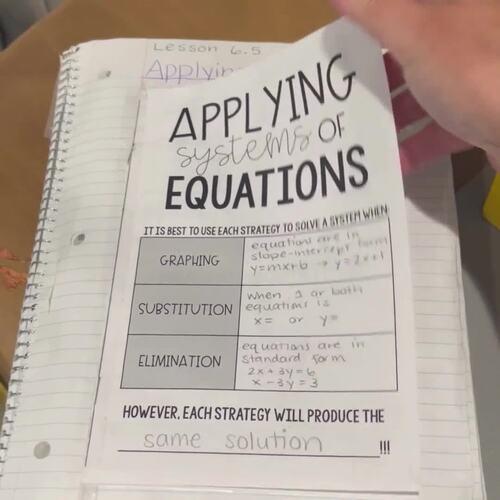 Lesson 6.5
Applyin
APPLYING
systems OF
EQUATIONS
IT IS BEST TO USE EACH STRATEGY TO SOLVE A SYSTEM WHEN:
GRAPHING
equations are in
slope-intercept form
y=mx+b → y=2x+1
SUBSTITUTION
when 1 or both
equations is
x= or y=
ELIMINATION
equations are in
standard form
2x+3y=6
x-3y=3
HOWEVER, EACH STRATEGY WILL PRODUCE THE
same solution !!!